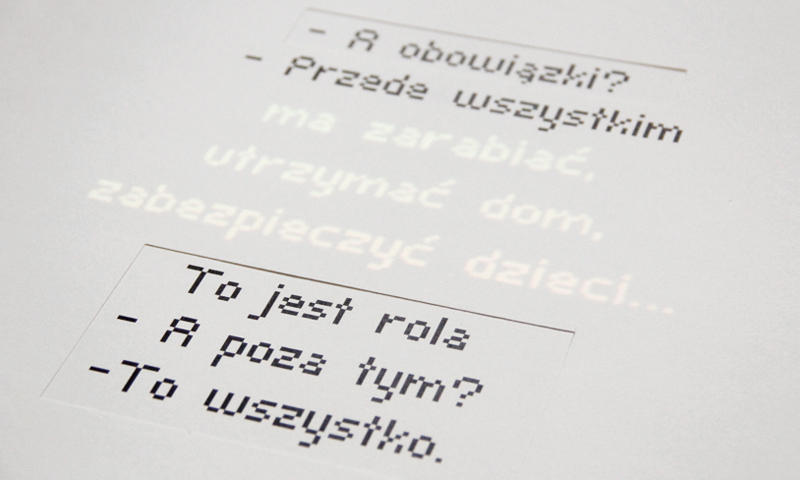 - A obowiązki?
- Przede wszystkim
ma zarabiać,
utrzymać dom,
zabezpieczyć dzieci...
To jest rola
- A poza tym?
-To wszystko.